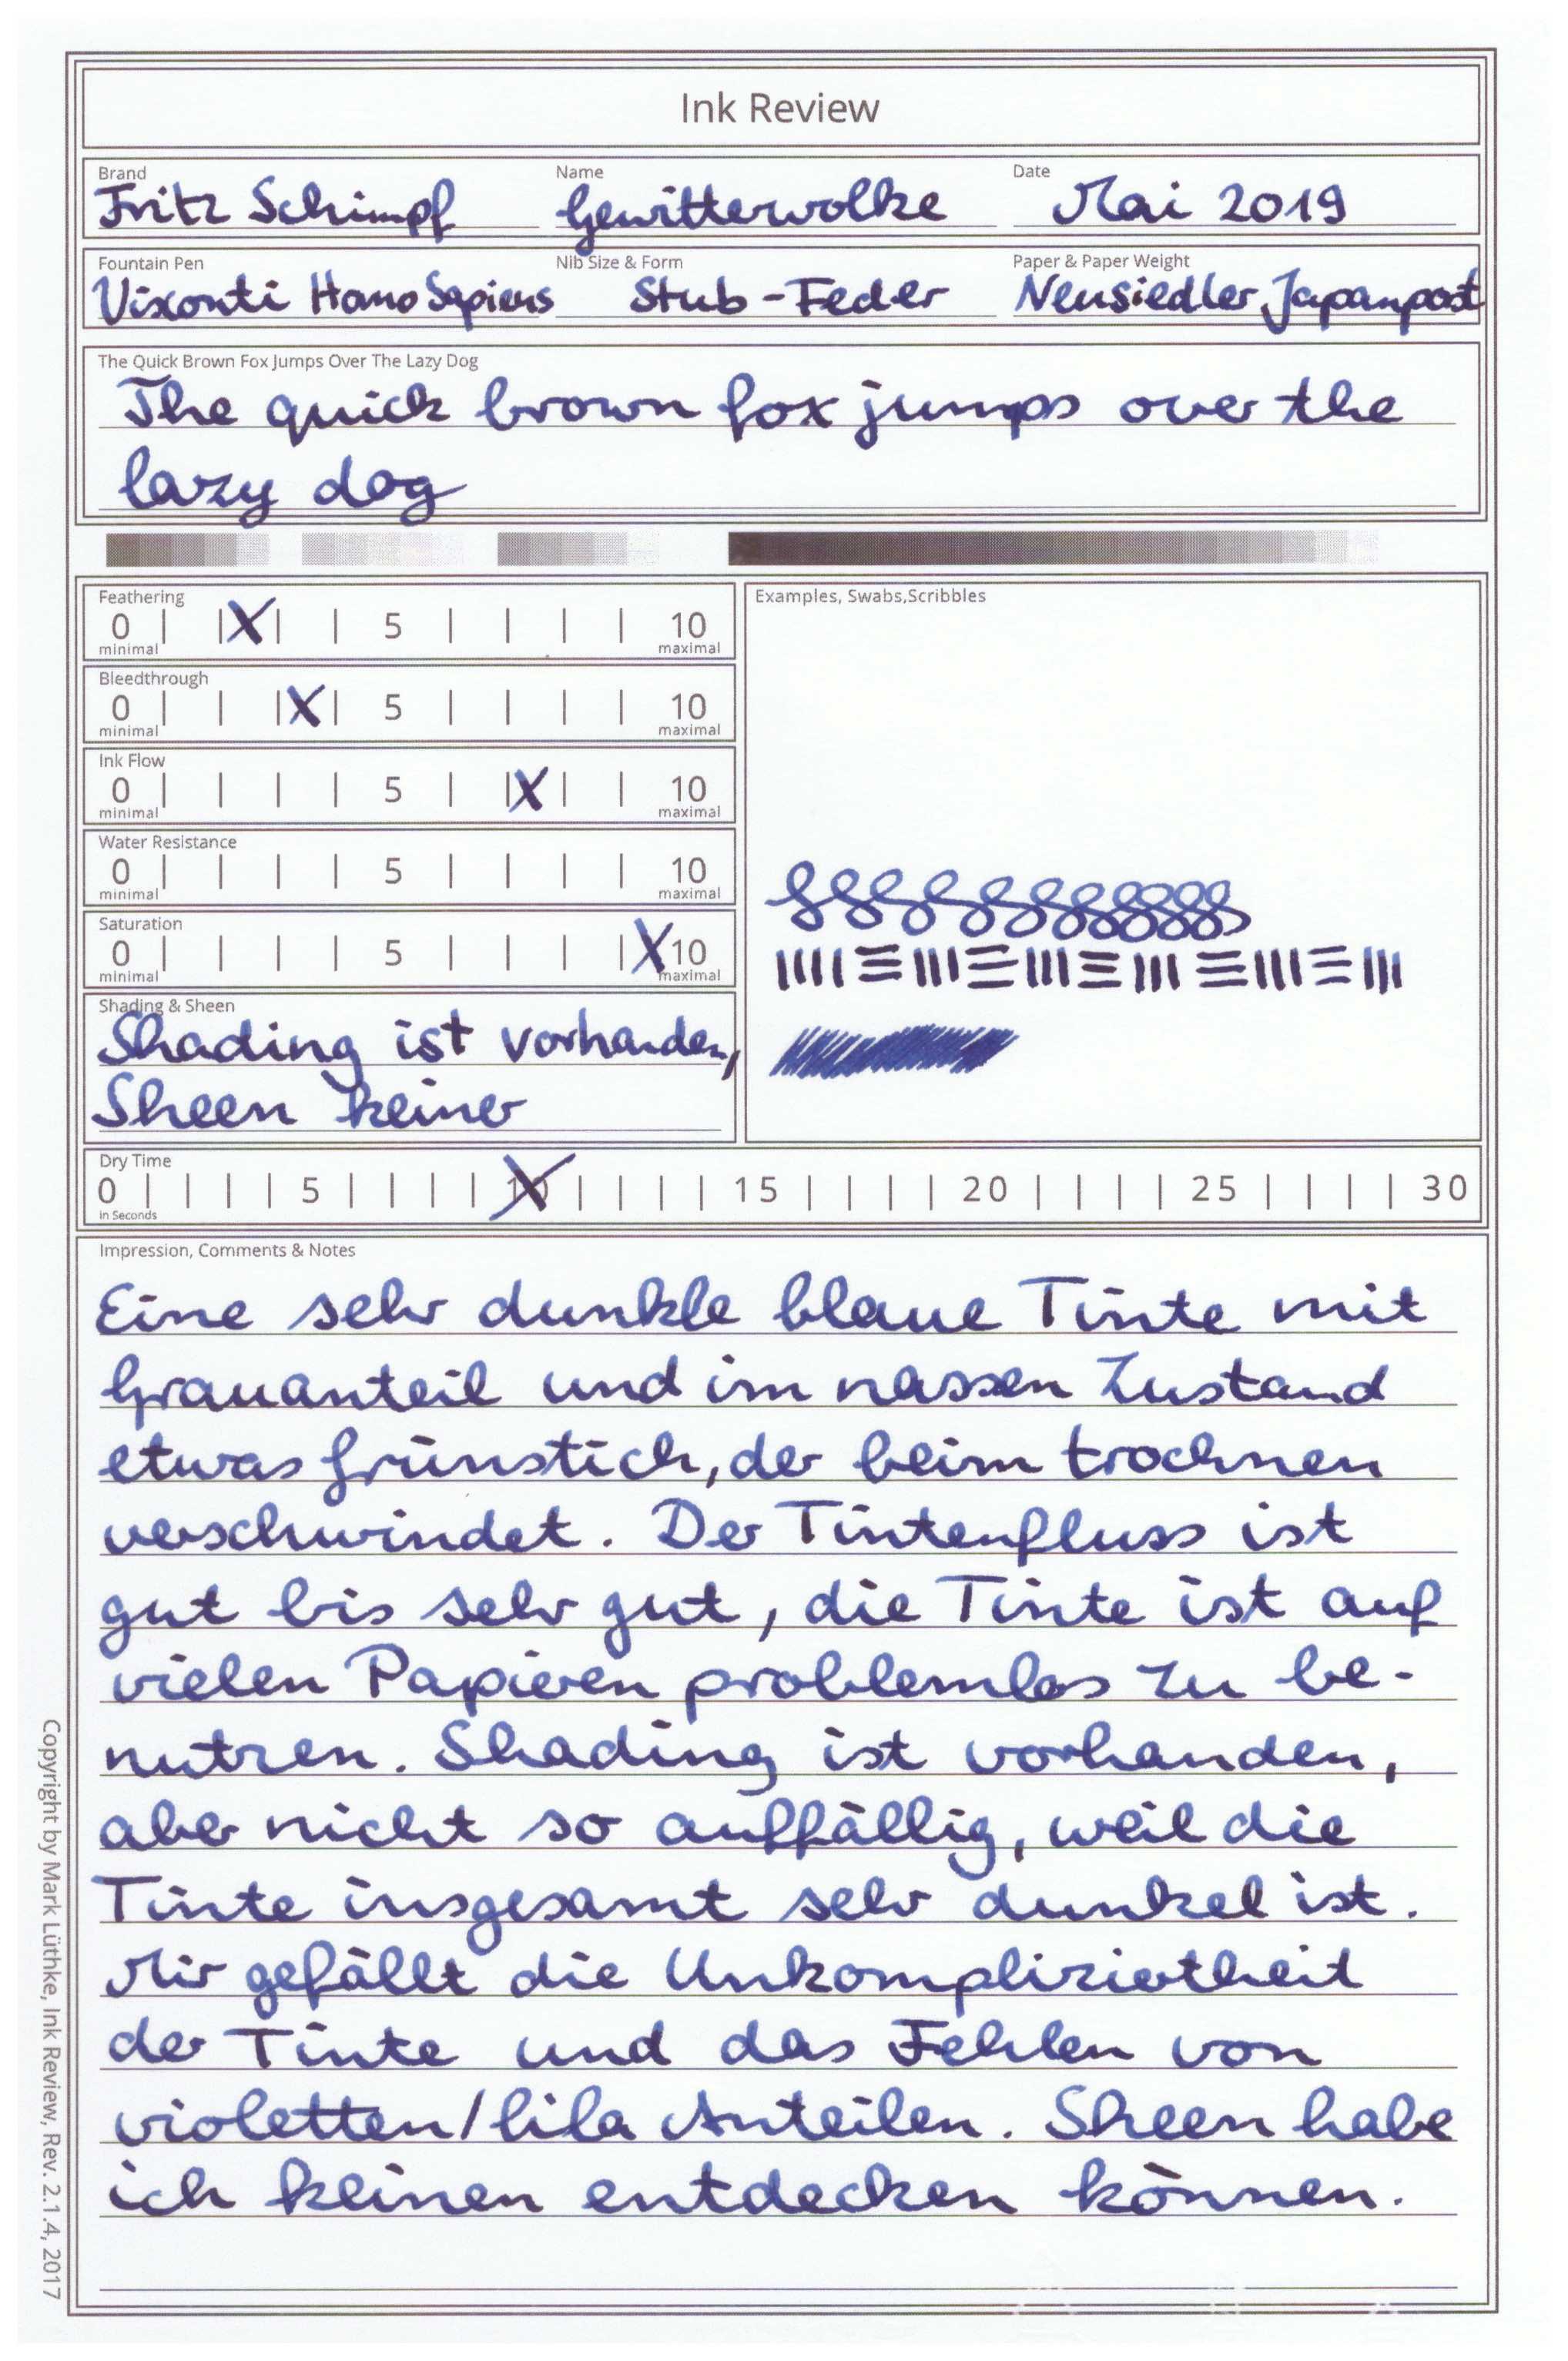 Ink Review
Brand Name Date
Fritz Schimpf Gewitterwolke Mai 2019
Fountain Pen Nib Size & Form Paper & Paper Weight
Visconti Homo Sapiens Stub-Feder Neusiedler Japanpost
The Quick Brown Fox Jumps Over The Lazy Dog
The quick brown fox jumps over the
lazy dog
Feathering
0 | | X | | 5 | | | | 10
minimal maximal
Bleedthrough
0 | | | X | 5 | | | | 10
minimal maximal
Ink Flow
0 | | | | 5 | | X | | 10
minimal maximal
Water Resistance
0 | | | | 5 | | | | 10
minimal maximal
Saturation
0 | | | | 5 | | | | X 10
minimal maximal
Shading & Sheen
Shading ist vorhanden,
Sheen keiner
Examples, Swabs,Scribbles
Dry Time
0 | | | | 5 | | | | 10 | | | | 15 | | | | 20 | | | | 25 | | | | 30
in Seconds
Impression, Comments & Notes
Eine sehr dunkle blaue Tinte mit
Grauanteil und im nassen Zustand
etwas Grünstich, der beim trocknen
verschwindet. Der Tintenfluss ist
gut bis sehr gut, die Tinte ist auf
vielen Papieren problemlos zu be-
nutzen. Shading ist vorhanden,
aber nicht so auffällig, weil die
Tinte insgesamt sehr dunkel ist.
Mir gefällt die Unkompliziertheit
der Tinte und das Fehlen von
violetten/lila Anteilen. Sheen habe
ich keinen entdecken können.
Copyright by Mark Lüthke, Ink Review, Rev. 2.1.4, 2017